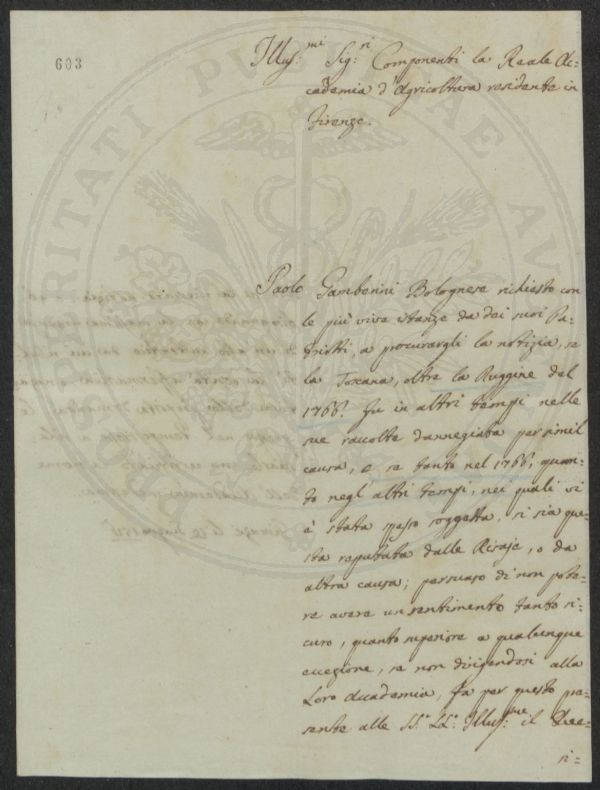 603
Illus.mi Sig.ri Componenti la Reale Ac=
cademia d'Agricoltura residente in
Firenze.
Paolo Gamberini Bolognese richiesto con
le più vive istanze da dei suoi Pa=
triotti, a procurargli la notizia, se
la Toscana, oltre la Ruggine del
1766. fu in altri tempi nelle
sue raccolte dannegiata per simil
causa, e se tanto nel 1766, quan=
to negl'altri tempi, nei quali vi
è stata spesso soggetta, si sia que=
sta reputata dalle Risaje, o da
altra causa; persuaso di non pote=
re avere un sentimento tanto si=
curo, quanto superiore a qualunque
eccezione, se non dirigendosi alla
Loro Accademia, fa per questo pre=
sente alle SS.e LL.e Illus.me il
si=
PROSPERITATI PUBLICAE AU